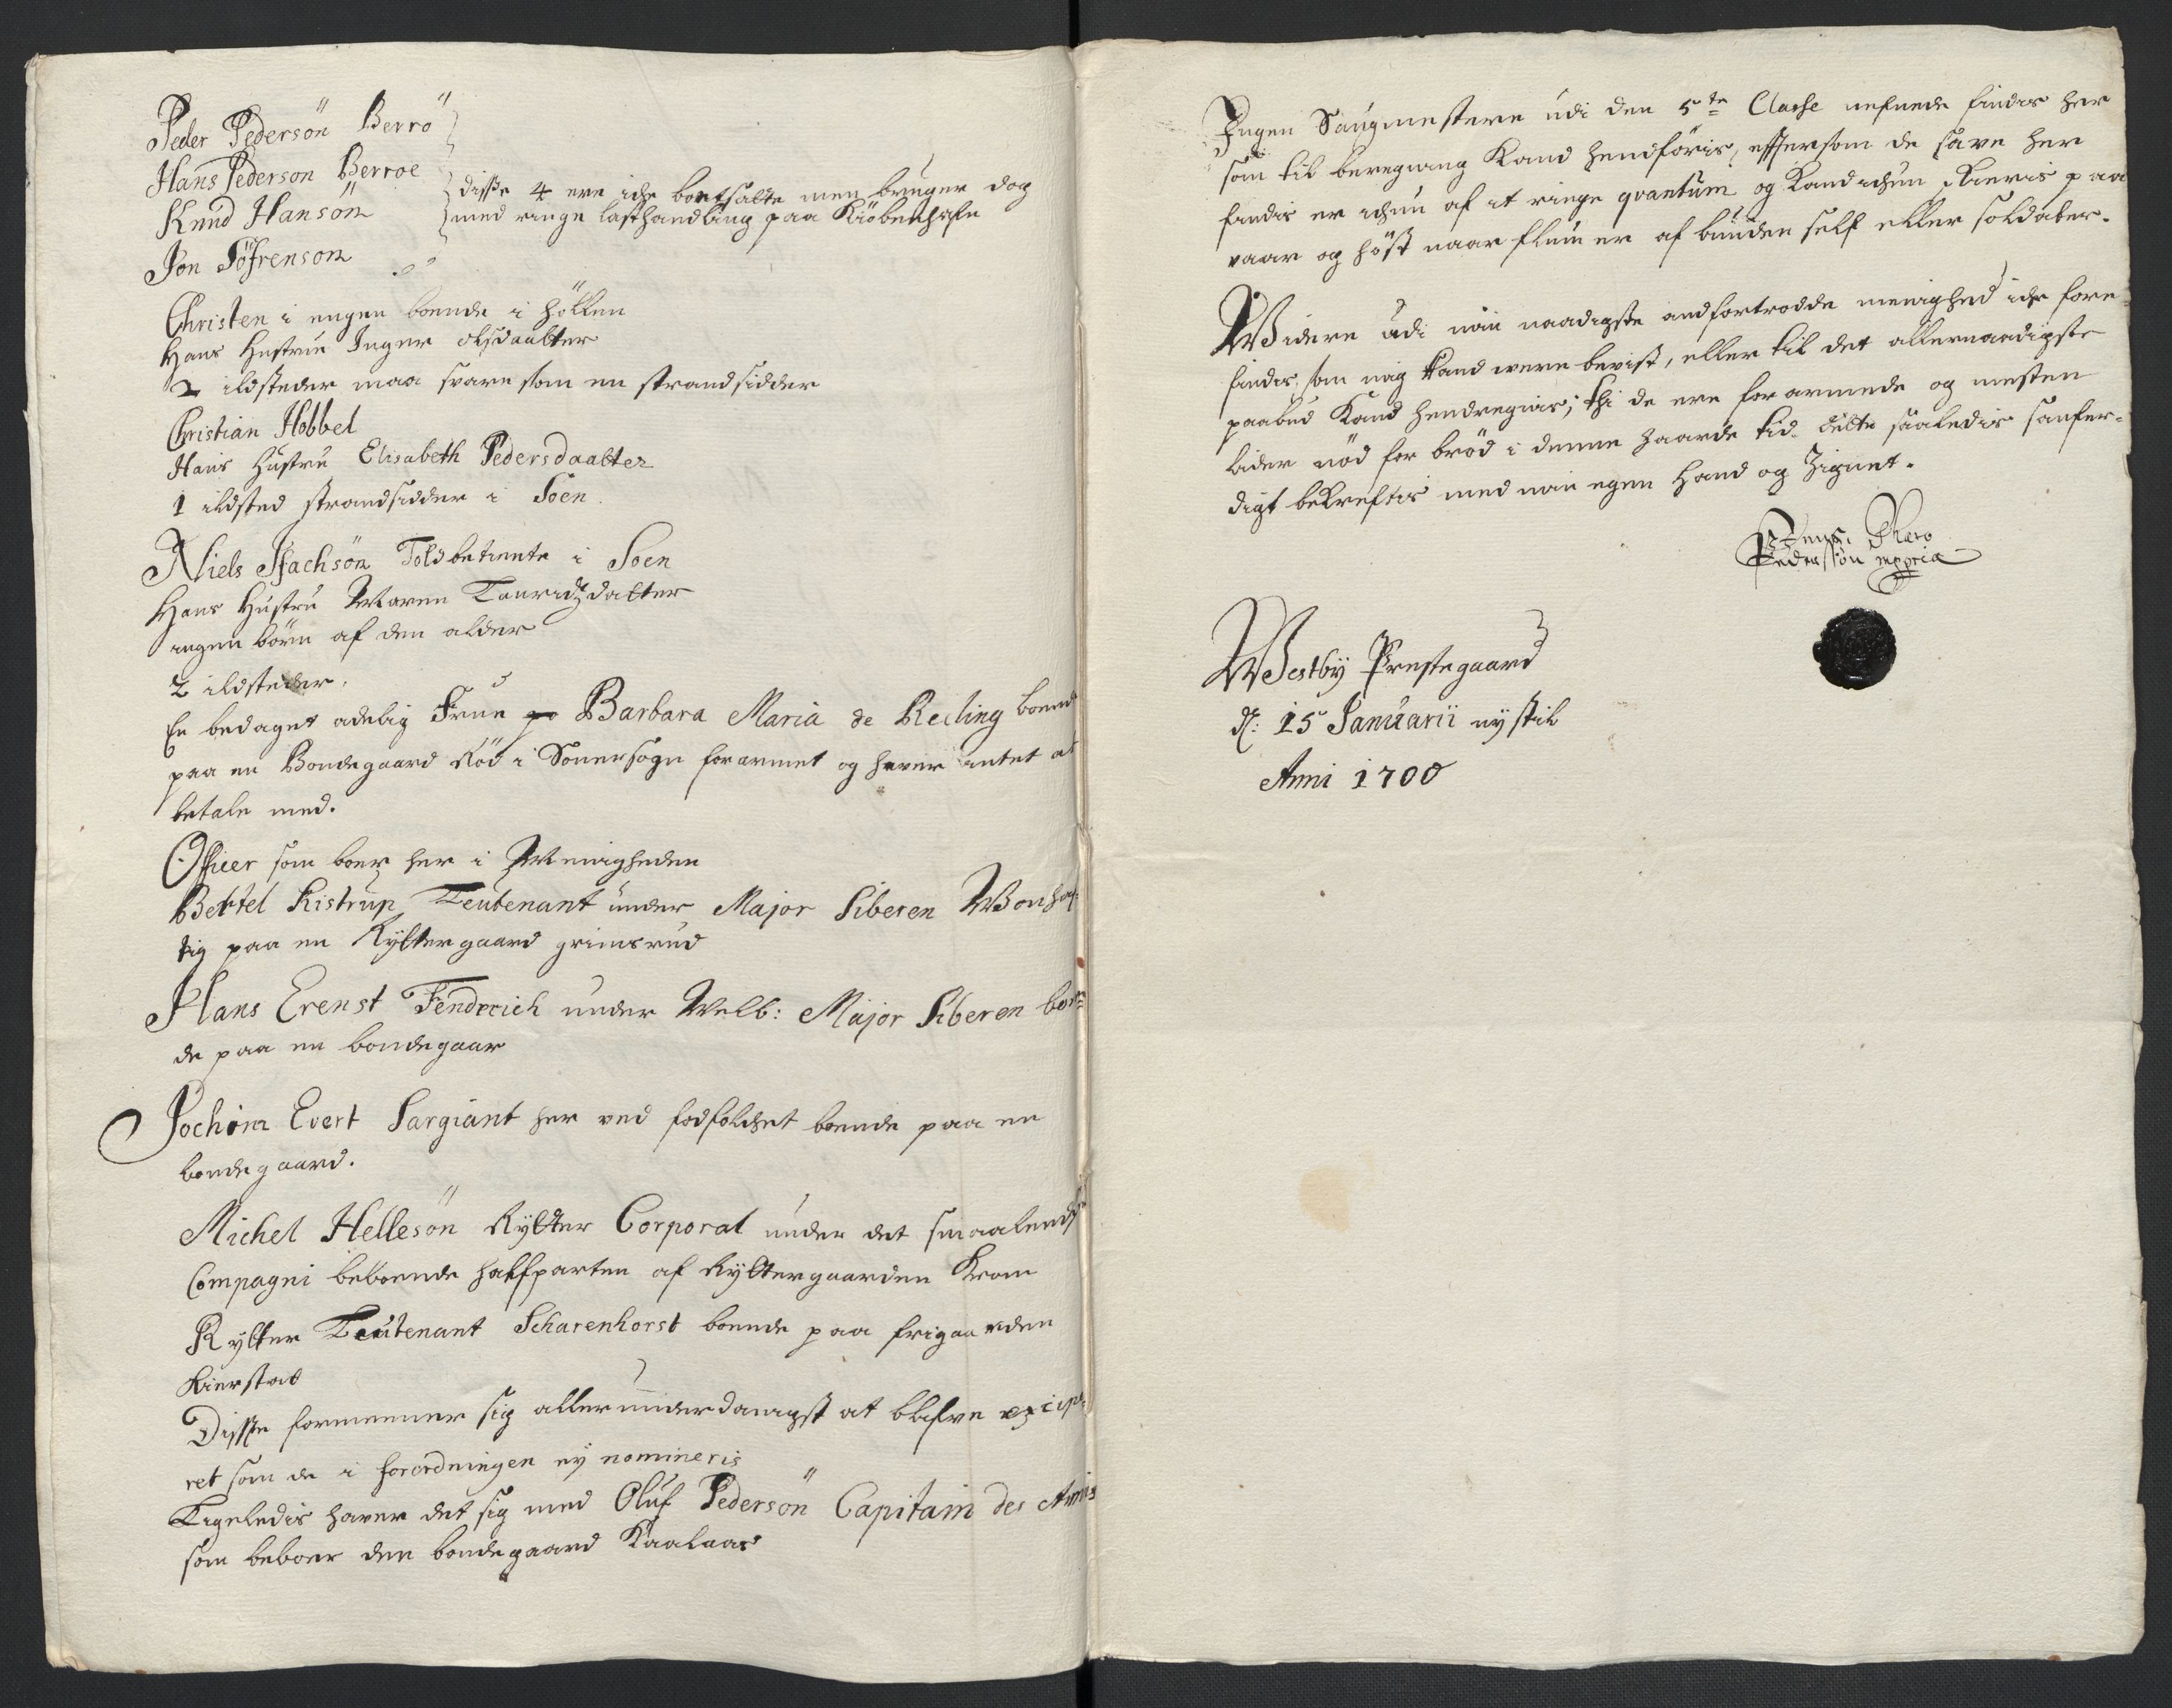 Peder Pedersön Berrö
Hans Pederson Berroe
Knud Hansön
Jon Söfrenson
disse 4 ere iche bortsatte men bruger dog
med ringe lasthandling paa Kiöbenhafn
Christen i engen boende i Hölken
Hans Hustrue Inger Olsdaatter
2 ildsteder maa svare som en strandsidder
Christian Hobbel
Hans Hustru Elisabeth Pedersdaatter
1 ildsted strandsidder i Soen
Niels Isachsön Toldbetiente i Soen
Hans Hustru Maren Lauridzdatter
ingen börn af den alder
2 ildsteder.
En bedaget adelig Frue Barbara Maria de Reiling boend
paa en Bondegaard Röd i Sonersogn forarmet og haver intet at
betale med.
Officer som boer her i Menigheden
Bertel Ristrup Leutenant under Major Siberen Wonhaf-
tig paa en Ryttergaard grimsrud
Hans Erenst Fenderich under Welb: Major Siberen boen-
de paa en bondegaar
Jochom Evert Sargiant her ved fodfolchet boende paa en
bondegaard.
Michel Hellesön Rytter Corporal under det smaalendsche
Compagni beboende halfparten af Ryttergaarden Krom
Rytter Leutenant Scharenhorst boende paa frigaarden
Kierstat
Disse formeener sig allerunderdanigst at blifve excipe-
ret som de i forordningen ey nomineris
Ligeledis haver det sig med Oluf Pedersön Capitain des Armis
som beboer den bondegaard Kaalaas
Ingen Saugmestere udi den 5te Classe nefnede findes her
som til beregning Kand henföris, eftersom de save her
findis er ichun af et ringe qvantum og Kand ichun skieris paa
vaar og höst naar flum er af bunden self eller soldater.
Widere udi min naadigste andfortrodde menighed iche fore-
findes, som mig Kand were bevist, eller til det allernaadigste
paabud Kand hendregnis; thi de ere forarmede og mesten
lider nöd for bröd i denne haarde tid. dette saaledis sanfer-
digt bekreftis med min egen Hand og Zignet.
Pederssön mppria
Westby Prestegaard
d: 15 Januarii ny stil
Anni 1700